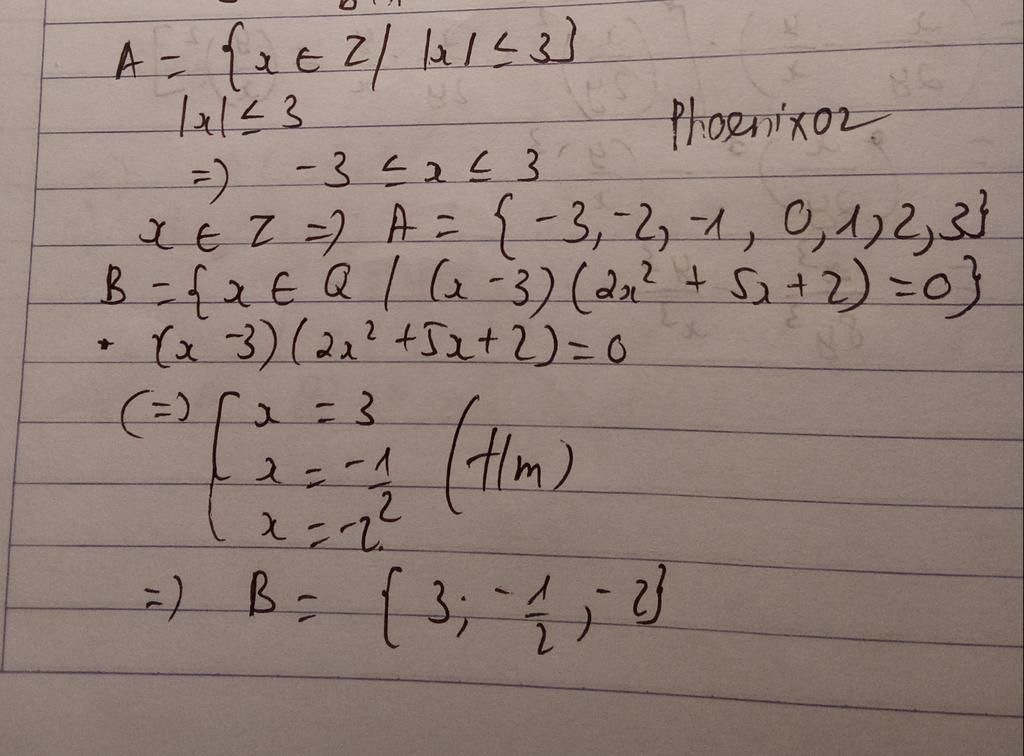 A = {x ∈ Z / |x| ≤ 3}
|x| ≤ 3
Phoenix02
=) -3 ≤ x ≤ 3
x ∈ Z =) A = {-3, -2, -1, 0, 1, 2, 3}
B = {x ∈ Q / (x - 3)(2x² + 5x + 2) = 0}
• (x - 3)(2x² + 5x + 2) = 0
(=) [ x = 3
x = -1/2 (t/m)
x = -2
=) B = {3; -1/2, -2}